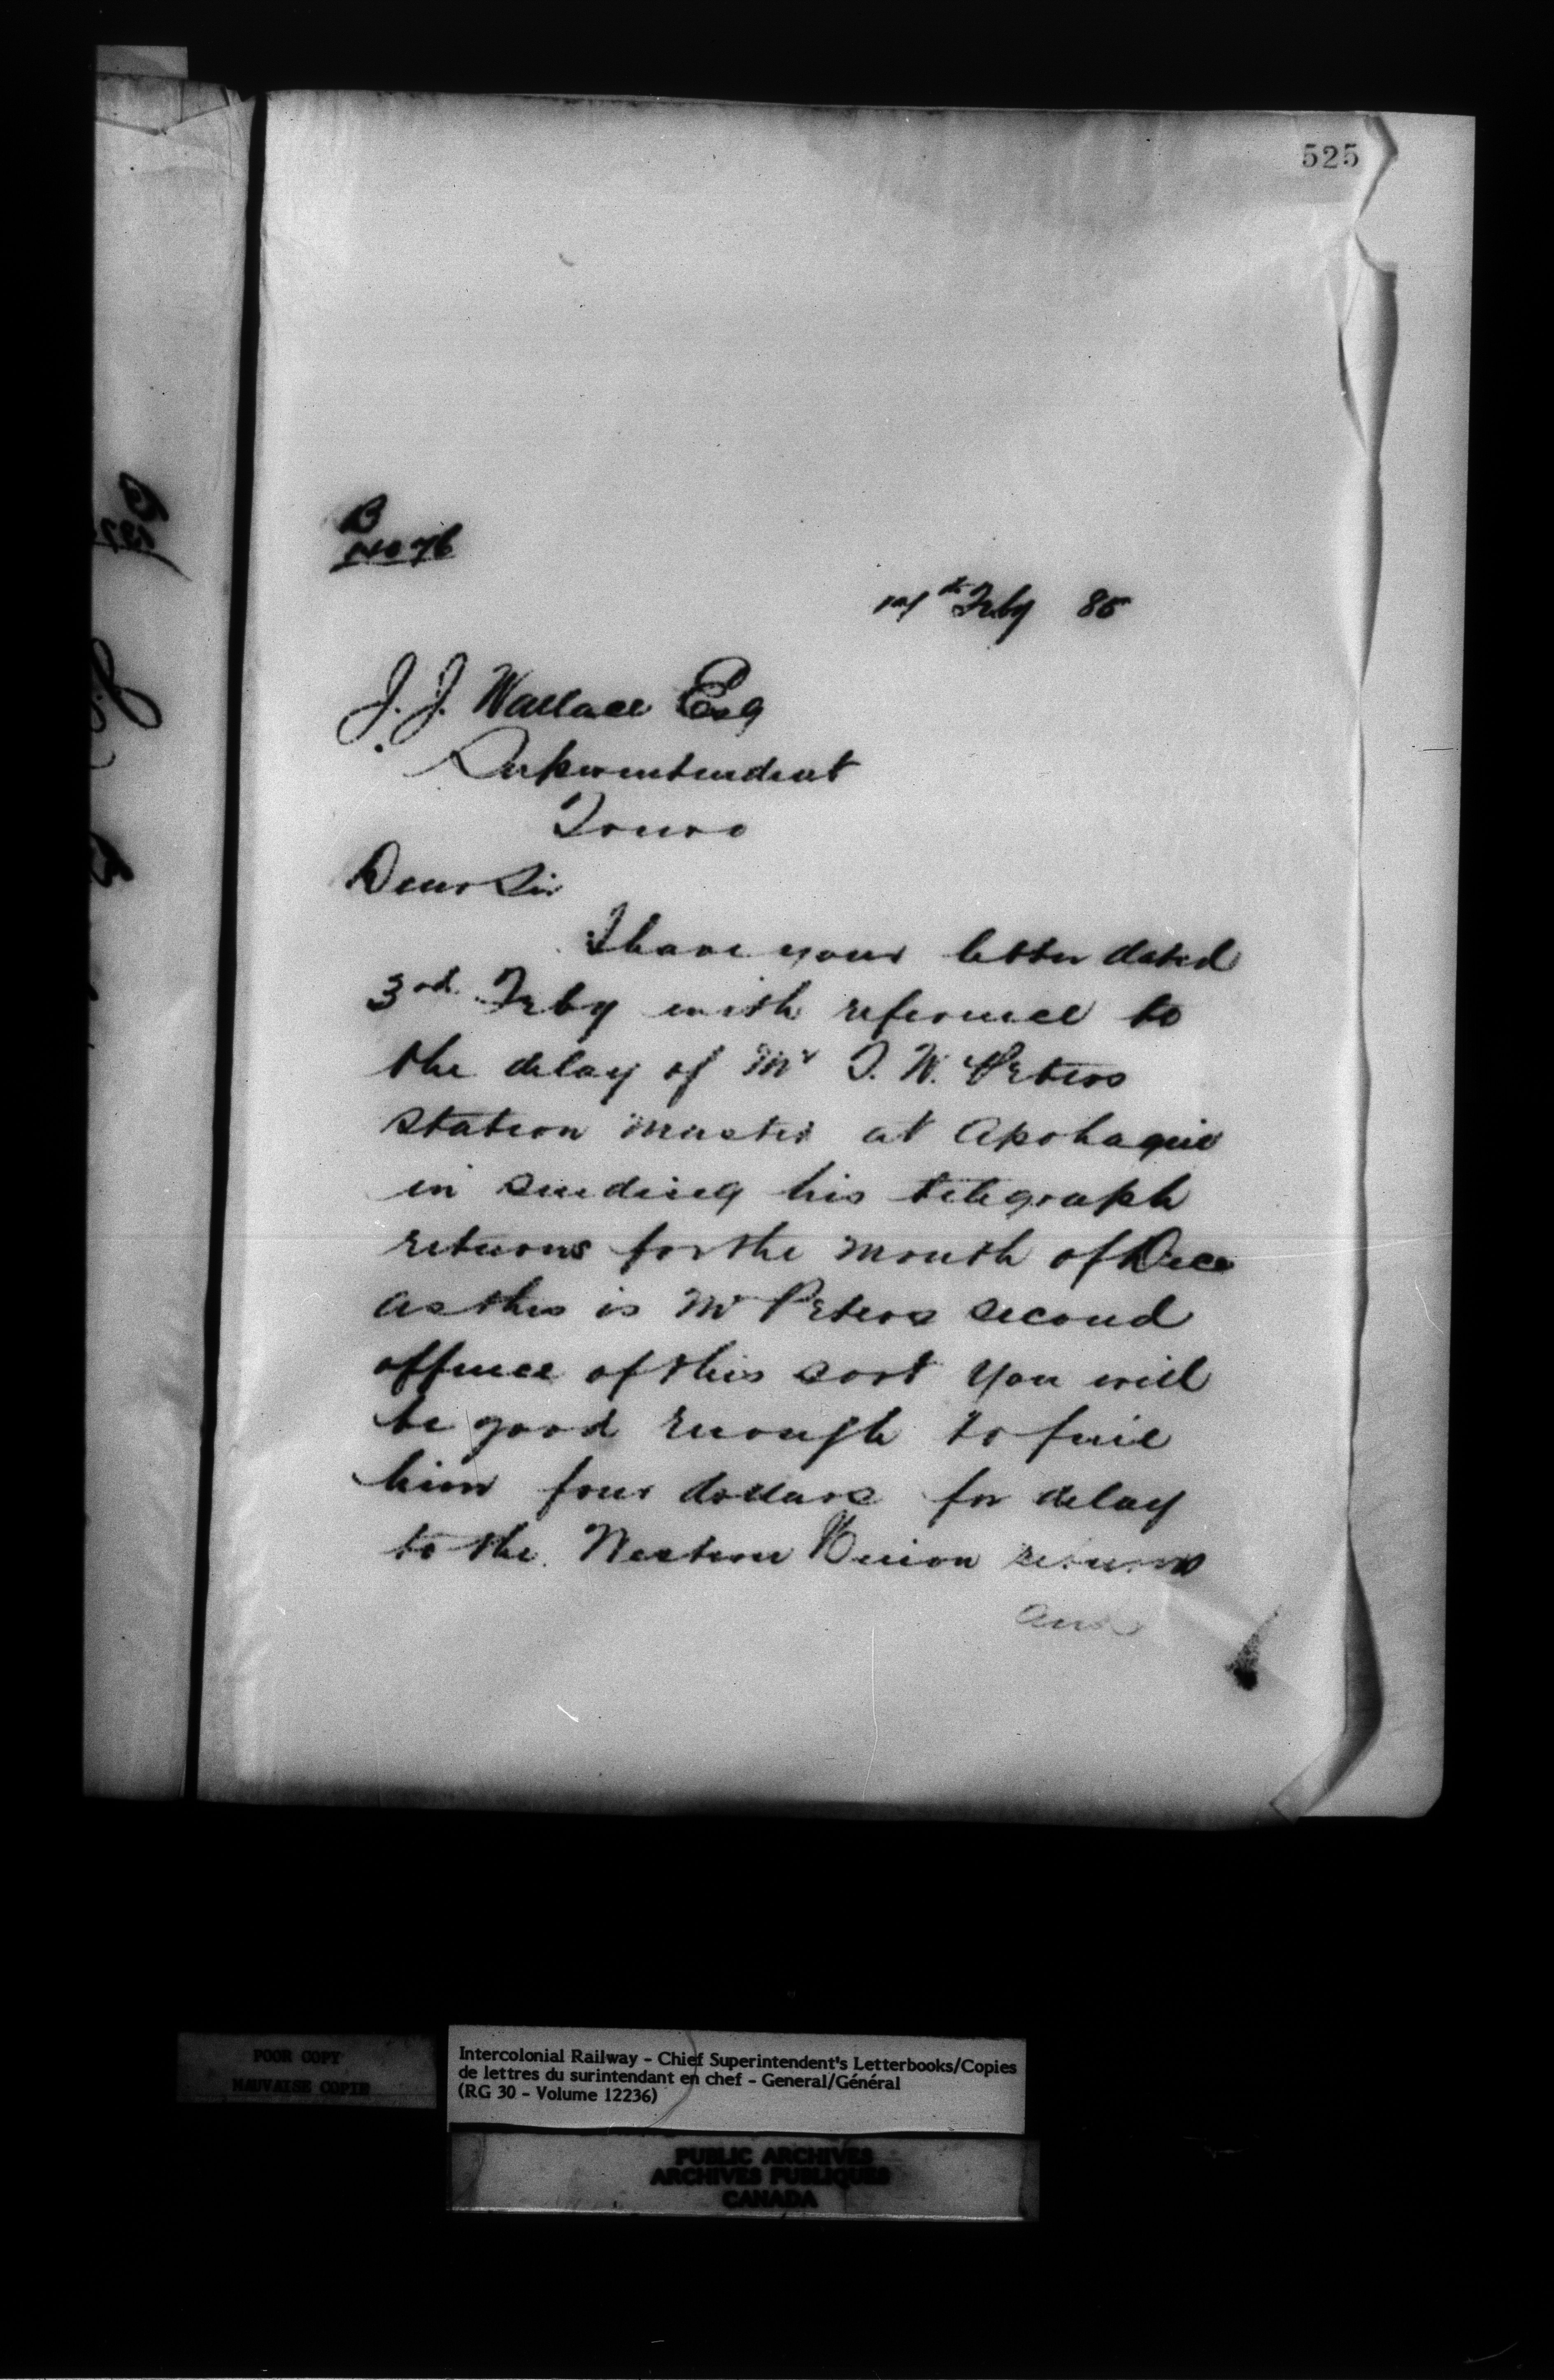 525
B
No 76
14th Feby 85
J. J. Wallace Esq
Superintendent
Truro
Dear Sir
I have your letter dated
3rd Feby with reference to
the delay of Mr T. W. Peters
station master at Apohaqui
in sending his telegraph
returns for the month of Dec
as this is Mr Peters second
offence of this sort you will
be good enough to fine
him four dollars for delay
to the Western Union returns
and
POOR COPY
MAUVAISE COPIE
Intercolonial Railway - Chief Superintendent's Letterbooks/Copies
de lettres du surintendant en chef - General/Général
(RG 30 - Volume 12236)
PUBLIC ARCHIVES
ARCHIVES PUBLIQUES
CANADA